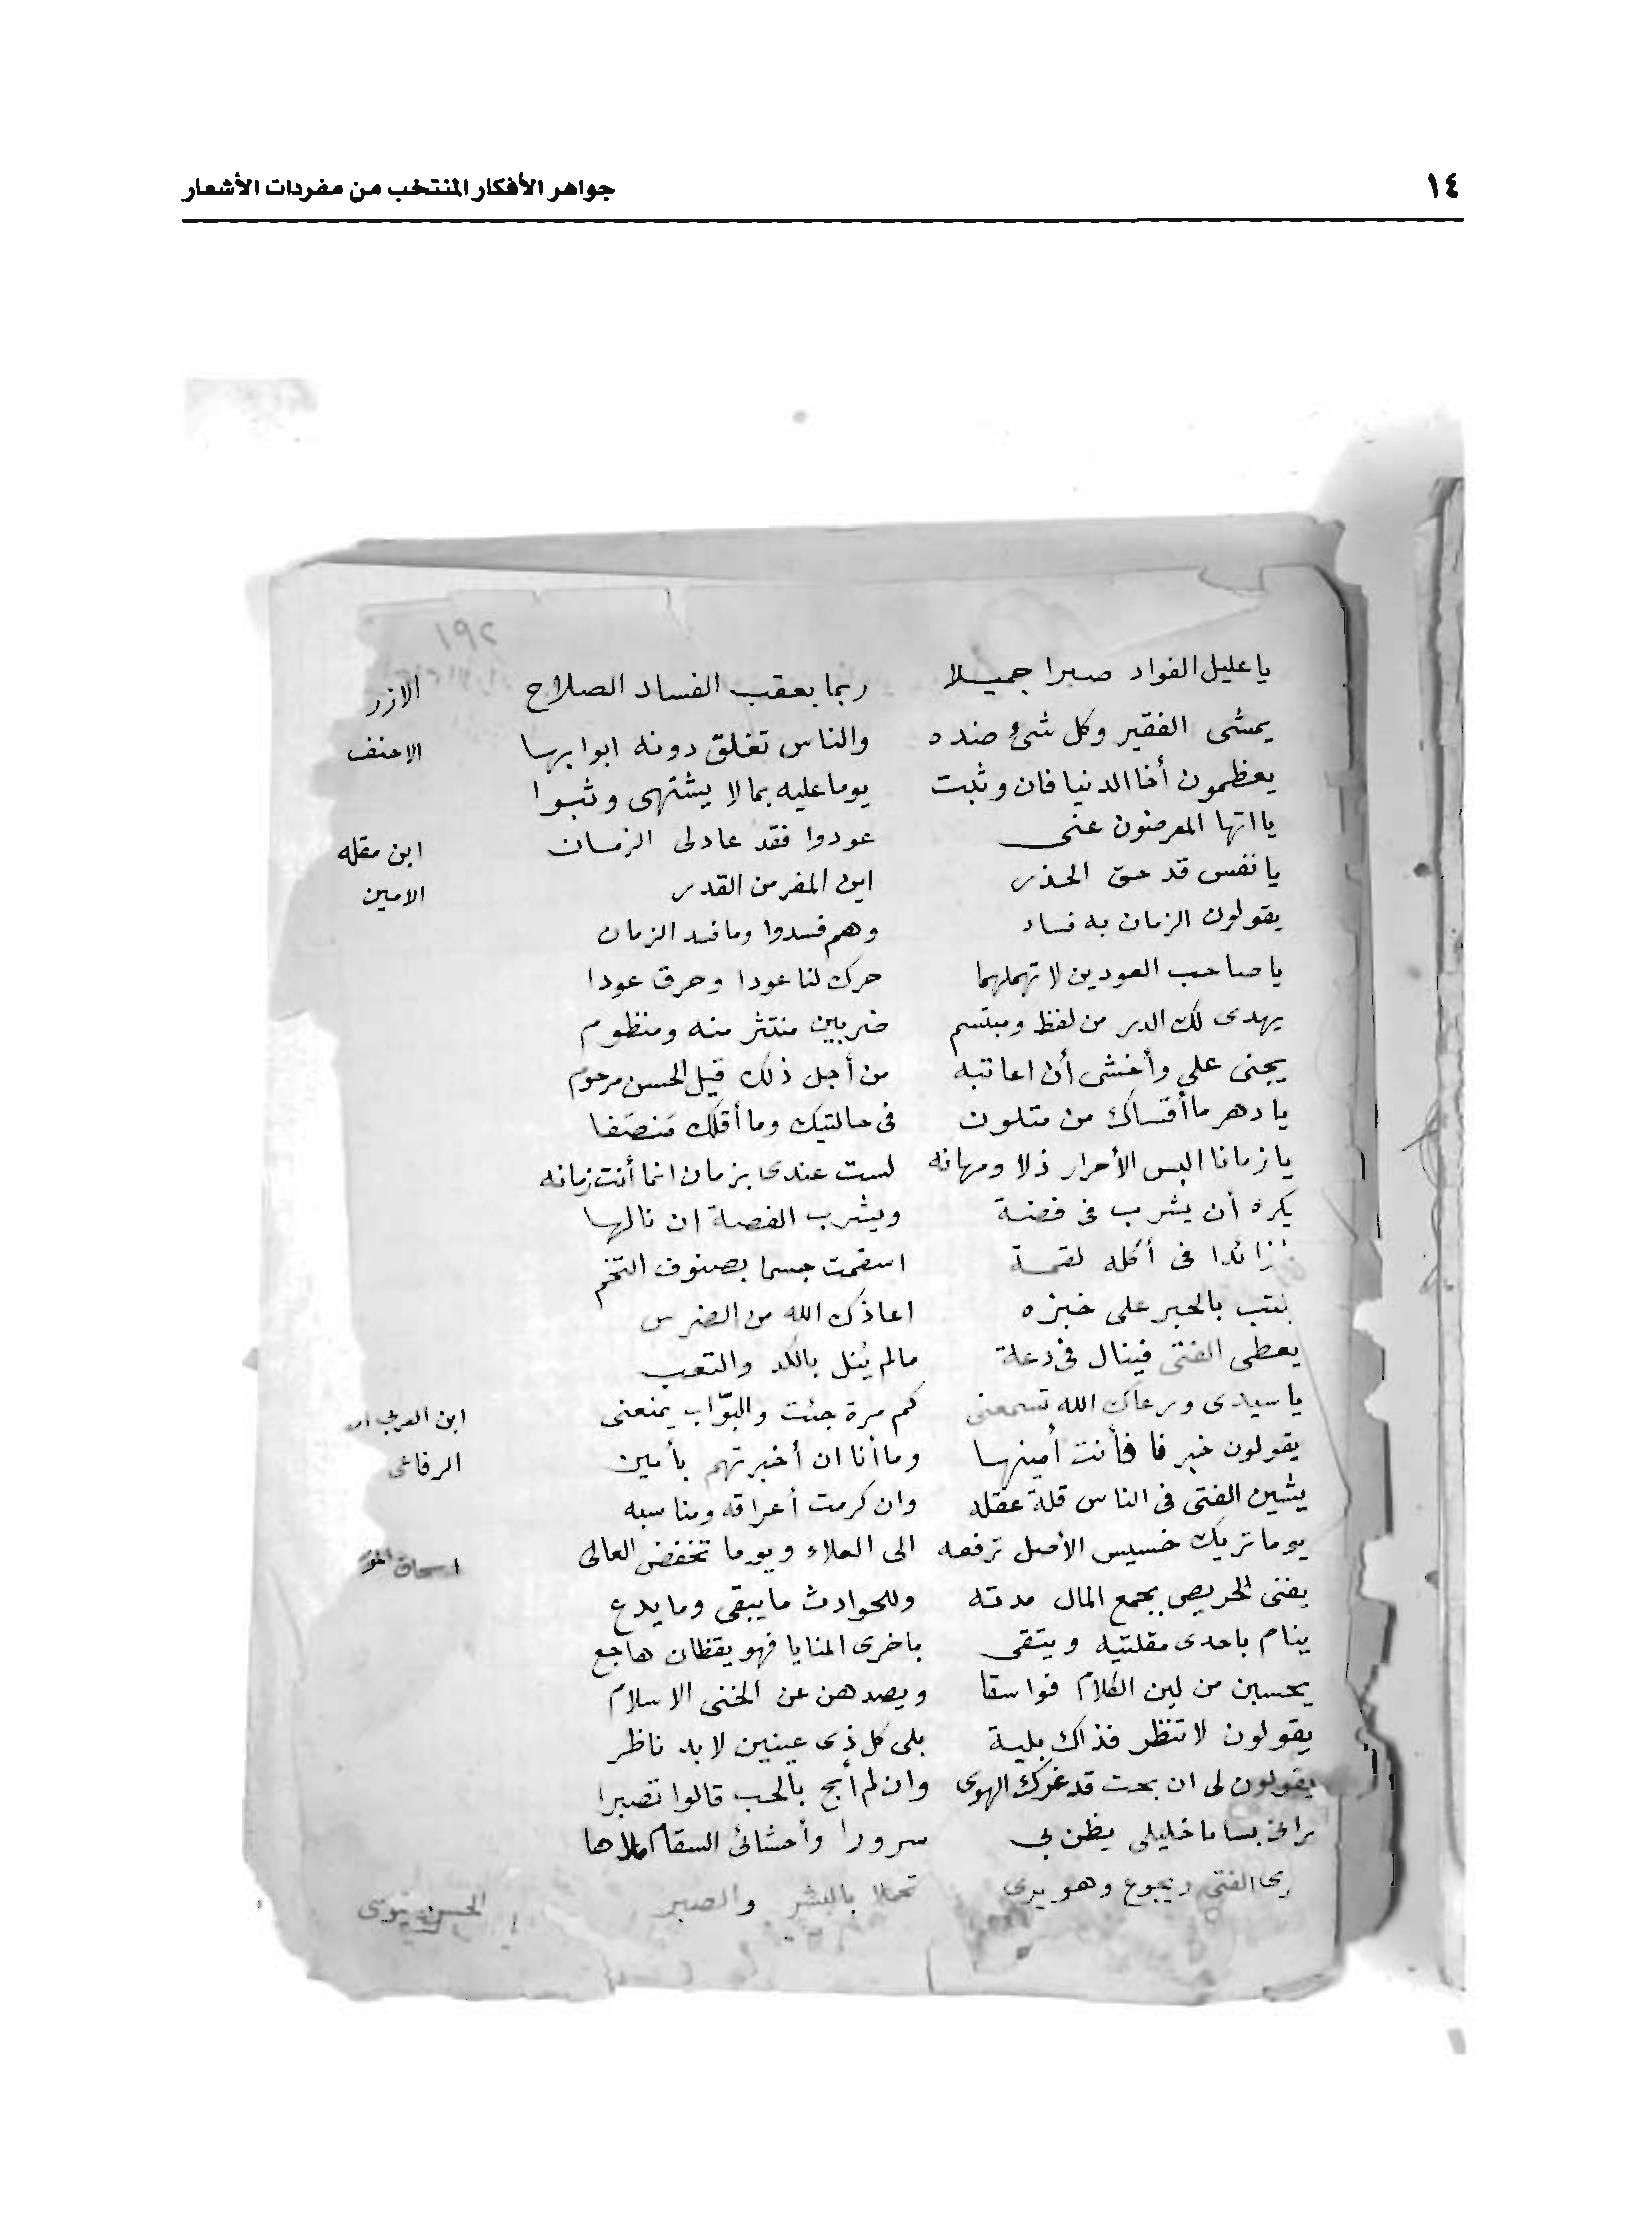 ١٤ جواهر الأفكار المنتخب من مفردات الأشعار
١٩٢
يا عليل الفواد صبرا جميلا ربما يعقب الفساد الصلاح الازر
يمشى الفقير وكل شئ ضده والناس تغلق دونه ابوابها الاحنف
يعظمون أخا الدنيا فان وثبت يوما عليه بما لا يشتهى وثبوا
يا ايها المعرضون عنى عودوا فقد عاد لى الزمان ابن مقله
يا نفس قد حق الحذر اين المفر من القدر الامين
يقولون الزمان به فساد وهم فسدوا وما فسد الزمان
يا صاحب العودين لا تهملهما حرك لنا عودا وحرق عودا
يهدى لك الدر من لفظ ومبتسم ضربين منتثر منه ومنظوم
يجنى علي وأخشى أن اعاتبه من أجل ذلك قيل الحسن مرحوم
يا دهر ما أقساك من متلون فى حالتيك وما أقلك مَنصَفا
يا زمانا البس الأحرار ذلا ومهانه لست عندى بزمان انما أنت زمانه
يكره أن يشرب فى فضة ويشرب الفضة ان نالها
زائدا فى أكله لقمة اسقمت جسما بصنوف التخم
بالحبر على خبزه اعاذك الله من الضرس
يعطى الفتى فينال فى دعة مالم يُنل بالكد والتعب
يا سيدى ورعاك الله تسمعنى كم مرة جئت والبوّاب يمنعنى ابن العربي
يقولون خبرنا فأنت أمينها وما أنا ان أخبرتهم بأمين الرفاعى
يشين الفتى فى الناس قلة عقله وان كرمت أعراقه ومناسبه
يوما تريك خسيس الأصل ترفعه الى العلاء ويوما تخفض العالى اسحاق
يفنى الحريص بجمع المال مدته وللحوادث ما يبقى وما يدع
ينام باحدى مقلتيه ويتقى باخرى المنايا فهو يقظان هاجع
يحسبن من لين الكلام فواسقا ويصدهن عن الخنى الاسلام
يقولون لا تنظر فذاك بلية بلى كل ذى عينين لا بد ناظر
يقولون لى ان بحت قد غرك الهوى وان لم أبح بالحب قالوا تصبرا
خليلى يظن بي سرورا وأحشائى السقام ملاها
الفتى ويجوع وهو يرى تحملا بالبشر والصبر الحسن